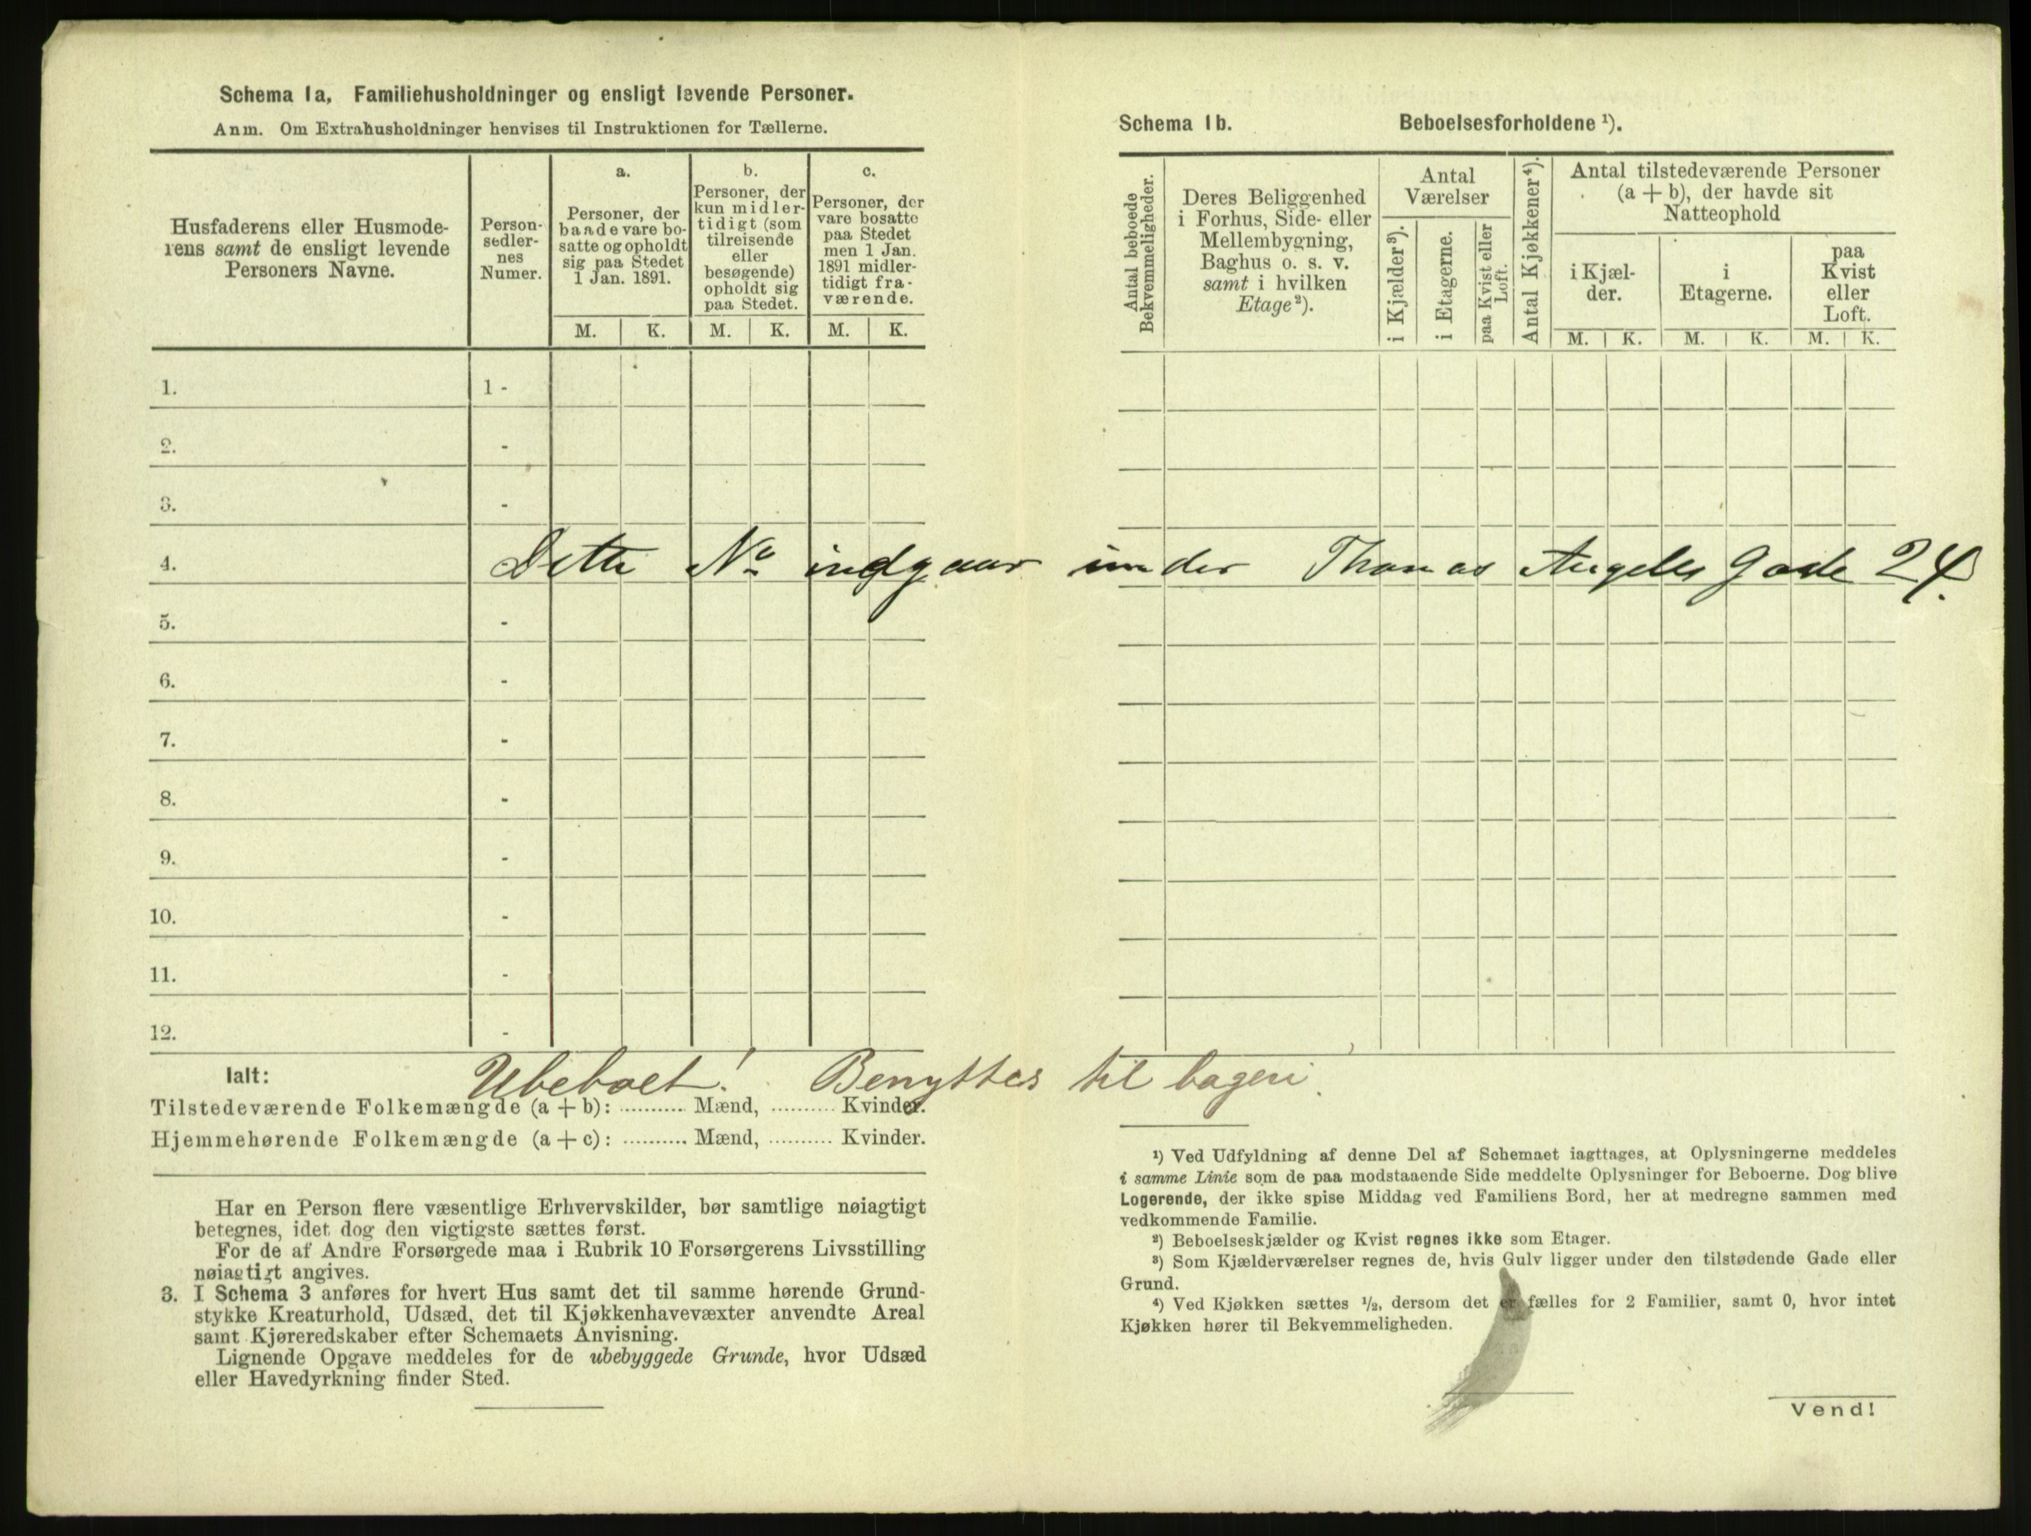 Schema 1a, Familiehusholdninger og ensligt levende Personer.
Anm. Om Extrahusholdninger henvises til Instruktionen for Tællerne.
Husfaderens eller Husmode-
rens samt de ensligt levende
Personers Navne.
Person-
sedler-
nes
Numer.
a.
Personer, der
baade vare bo-
satte og opholdt
sig paa Stedet
1 Jan. 1891.
b.
Personer, der
kun midler-
tidigt (som
tilreisende
eller
besøgende)
opholdt sig
paa Stedet.
c.
Personer, der
vare bosatte
paa Stedet
men 1 Jan.
1891 midler-
tidigt fra-
værende.
M. K. M. K. M. K.
1. 1 -
2. -
3. -
4. Dette No indgaar under Thomas Angells Gade 24.
5. -
6. -
7. -
8. -
9. -
10. -
11. -
12. -
Ialt: Ubeboet! Benyttes til bageri
Tilstedeværende Folkemængde (a + b): .......... Mænd, .......... Kvinder.
Hjemmehørende Folkemængde (a + c): .......... Mænd, .......... Kvinder.
Har en Person flere væsentlige Erhvervskilder, bør samtlige nøiagtigt
betegnes, idet dog den vigtigste sættes først.
For de af Andre Forsørgede maa i Rubrik 10 Forsørgerens Livsstilling
nøiagtigt angives.
3. I Schema 3 anføres for hvert Hus samt det til samme hørende Grund-
stykke Kreaturhold, Udsæd, det til Kjøkkenhavevæxter anvendte Areal
samt Kjøreredskaber efter Schemaets Anvisning.
Lignende Opgave meddeles for de ubebyggede Grunde, hvor Udsæd
eller Havedyrkning finder Sted.
Schema 1b. Beboelsesforholdene ¹).
Antal beboede
Bekvemmeligheder.
Deres Beliggenhed
i Forhus, Side- eller
Mellembygning,
Baghus o. s. v.
samt i hvilken
Etage²).
Antal
Værelser
i Kjælder³).
i Etagerne.
paa Kvist eller
Loft.
Antal Kjøkkener⁴).
Antal tilstedeværende Personer
(a + b), der havde sit
Natteophold
i Kjæl-
der.
i
Etagerne.
paa
Kvist
eller
Loft.
M. K. M. K. M. K.
¹) Ved Udfyldning af denne Del af Schemaet iagttages, at Oplysningerne meddeles
i samme Linie som de paa modstaaende Side meddelte Oplysninger for Beboerne. Dog blive
Logerende, der ikke spise Middag ved Familiens Bord, her at medregne sammen med
vedkommende Familie.
²) Beboelseskjælder og Kvist regnes ikke som Etager.
³) Som Kjælderværelser regnes de, hvis Gulv ligger under den tilstødende Gade eller
Grund.
⁴) Ved Kjøkken sættes ½, dersom det er fælles for 2 Familier, samt 0, hvor intet
Kjøkken hører til Bekvemmeligheden.
Vend!